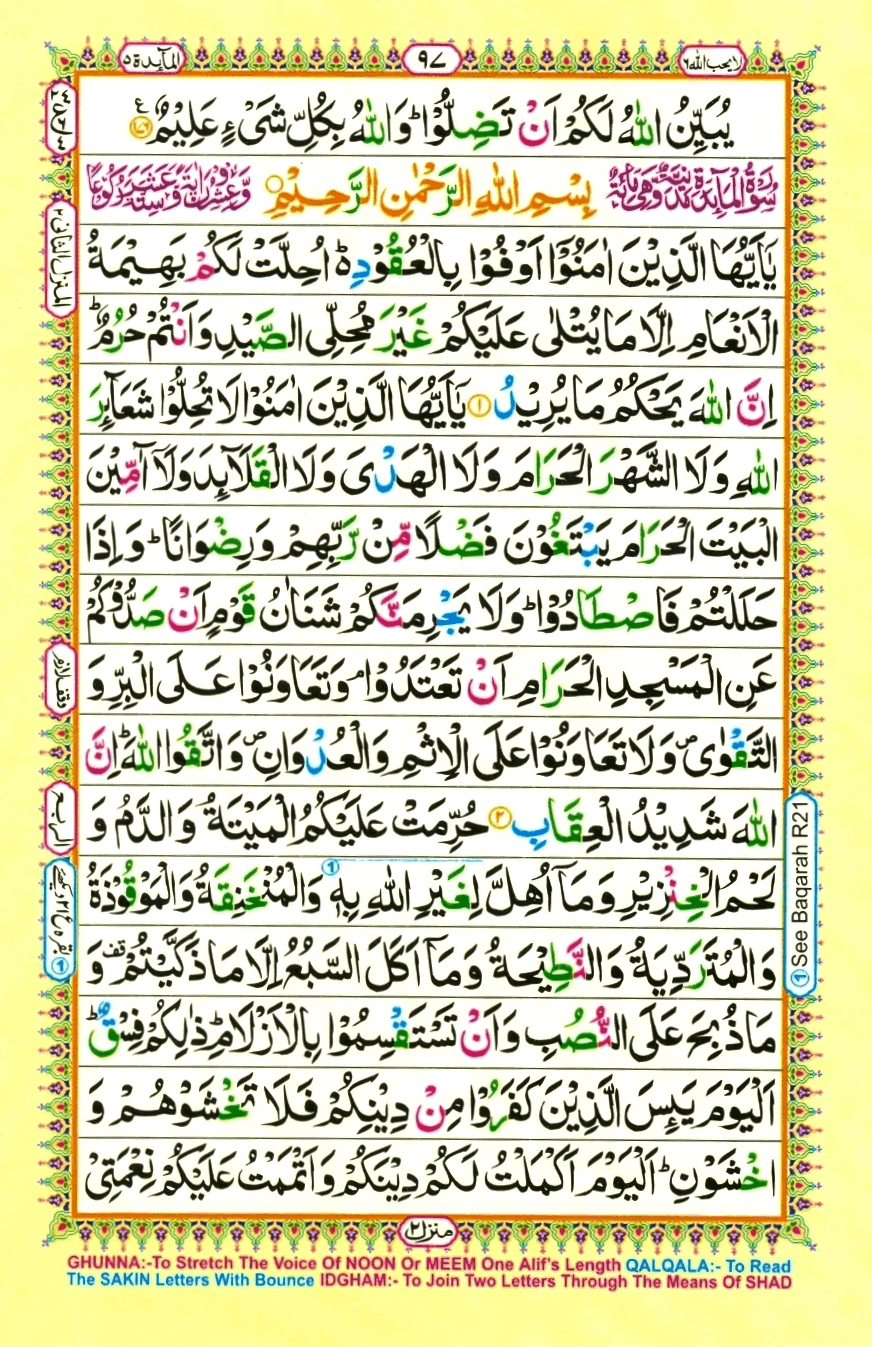 لا يحب الله ٦
٩٧
المآئدة ٥
يُبَيِّنُ اللّٰهُ لَكُمْ اَنْ تَضِلُّوْا ؕ وَاللّٰهُ بِكُلِّ شَیْءٍ عَلِيْمٌ ﴿۱۷۶﴾
بِسْمِ اللّٰهِ الرَّحْمٰنِ الرَّحِيْمِ
يٰۤاَيُّهَا الَّذِيْنَ اٰمَنُوْۤا اَوْفُوْا بِالْعُقُوْدِ ؕ۬ اُحِلَّتْ لَكُمْ بَهِيْمَةُ
الْاَنْعَامِ اِلَّا مَا يُتْلٰى عَلَيْكُمْ غَيْرَ مُحِلِّی الصَّيْدِ وَاَنْتُمْ حُرُمٌ ؕ
اِنَّ اللّٰهَ يَحْكُمُ مَا يُرِيْدُ ﴿۱﴾ يٰۤاَيُّهَا الَّذِيْنَ اٰمَنُوْا لَا تُحِلُّوْا شَعَآئِرَ
اللّٰهِ وَلَا الشَّهْرَ الْحَرَامَ وَلَا الْهَدْیَ وَلَا الْقَلَآئِدَ وَلَاۤ آٰمِّيْنَ
الْبَيْتَ الْحَرَامَ يَبْتَغُوْنَ فَضْلًا مِّنْ رَّبِّهِمْ وَرِضْوَانًا ؕ وَاِذَا
حَلَلْتُمْ فَاصْطَادُوْا ؕ وَلَا يَجْرِمَنَّكُمْ شَنَاٰنُ قَوْمٍ اَنْ صَدُّوْكُمْ
عَنِ الْمَسْجِدِ الْحَرَامِ اَنْ تَعْتَدُوْا ۘ وَتَعَاوَنُوْا عَلَى الْبِرِّ وَ
التَّقْوٰى ۪ وَلَا تَعَاوَنُوْا عَلَى الْاِثْمِ وَالْعُدْوَانِ ۪ وَاتَّقُوا اللّٰهَ ؕ اِنَّ
اللّٰهَ شَدِيْدُ الْعِقَابِ ﴿۲﴾ حُرِّمَتْ عَلَيْكُمُ الْمَيْتَةُ وَالدَّمُ وَ
لَحْمُ الْخِنْزِيْرِ وَمَاۤ اُهِلَّ لِغَيْرِ اللّٰهِ بِهٖ وَالْمُنْخَنِقَةُ وَالْمَوْقُوْذَةُ
وَالْمُتَرَدِّيَةُ وَالنَّطِيْحَةُ وَمَاۤ اَكَلَ السَّبُعُ اِلَّا مَا ذَكَّيْتُمْ ۟ وَ
مَا ذُبِحَ عَلَى النُّصُبِ وَاَنْ تَسْتَقْسِمُوْا بِالْاَزْلَامِ ؕ ذٰلِكُمْ فِسْقٌ ؕ
اَلْيَوْمَ يَئِسَ الَّذِيْنَ كَفَرُوْا مِنْ دِيْنِكُمْ فَلَا تَخْشَوْهُمْ وَ
اخْشَوْنِ ؕ اَلْيَوْمَ اَكْمَلْتُ لَكُمْ دِيْنَكُمْ وَاَتْمَمْتُ عَلَيْكُمْ نِعْمَتِیْ
المنزل الثانی ۲
وقف لازم
الربع
① See Baqarah R21
منزل ۲
GHUNNA:-To Stretch The Voice Of NOON Or MEEM One Alif's Length QALQALA:- To Read
The SAKIN Letters With Bounce IDGHAM:- To Join Two Letters Through The Means Of SHAD